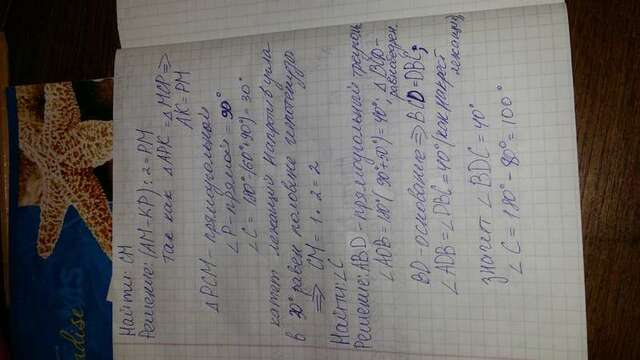 Найти: CM
Решение: (AM-KP):2=PM
Так как △APK = △MCP ⇒
AK=PM
△PCM - прямоугольной
∠P - прямой = 90°
∠C = 180°-(60°+90°) = 30°
катет лежащий напротив угла
в 30° равен половине гипотенузы
⇒ CM = 1 · 2 = 2
Найти: ∠C
Решение: ABD - прямоугольный треуголь
∠ADB = 180°(90°+50°) = 40°; △ BCD-
равнобедрен.
BD - основание ⇒ BCD = DBC;
∠ADB = ∠DBC = 40° (как накрест
лежащие),
значит ∠BDC = 40°
∠C = 180° - 80° = 100°